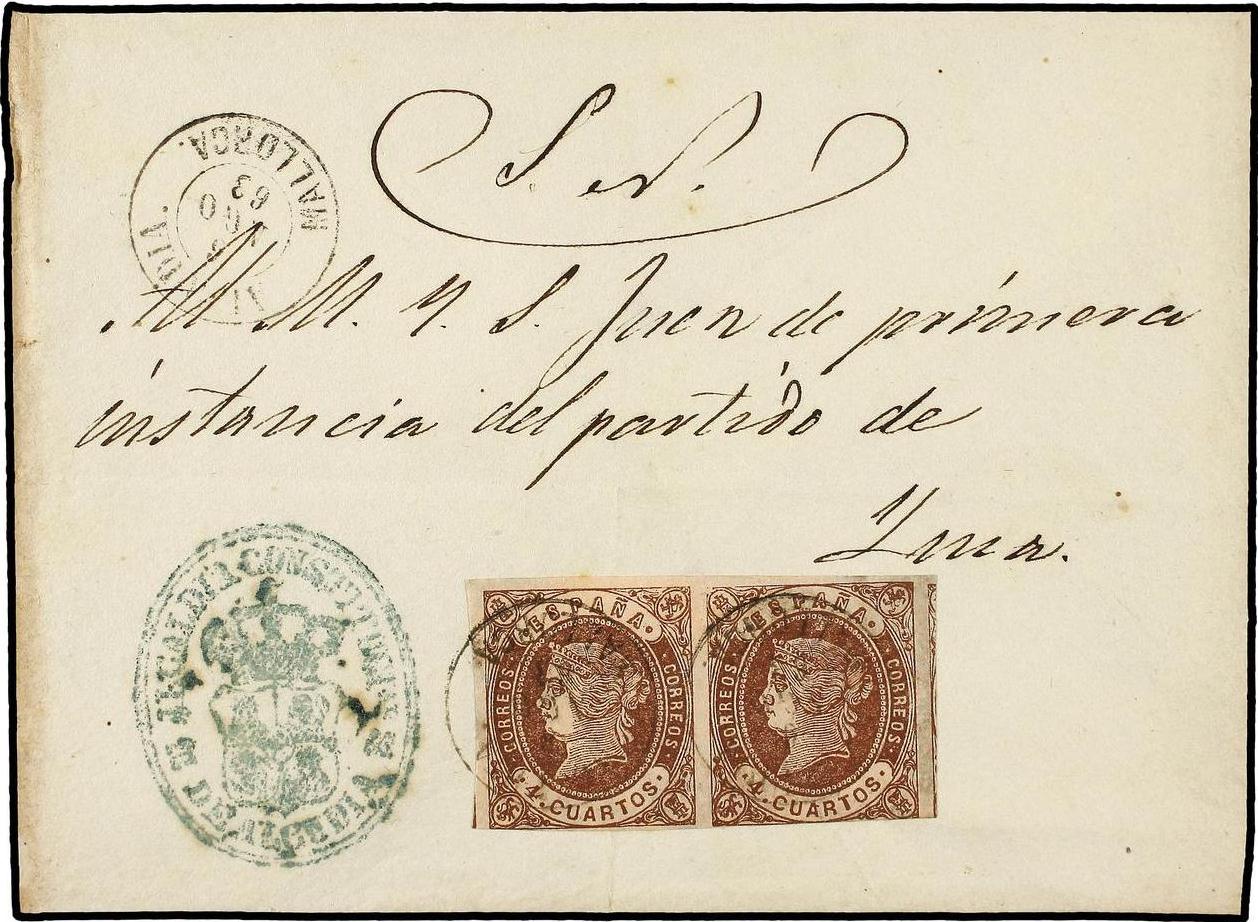 MALLORCA.
63
DIA.
Sor.
Al M. Y. S. Juez de primera
instancia del partido de
Ynca.
ALCALDIA CONSTITUCIONAL
DE ALCUDIA
ESPAÑA.
CORREOS
CORREOS
4. CUARTOS.
ESPAÑA.
CORREOS
CORREOS
4. CUARTOS.